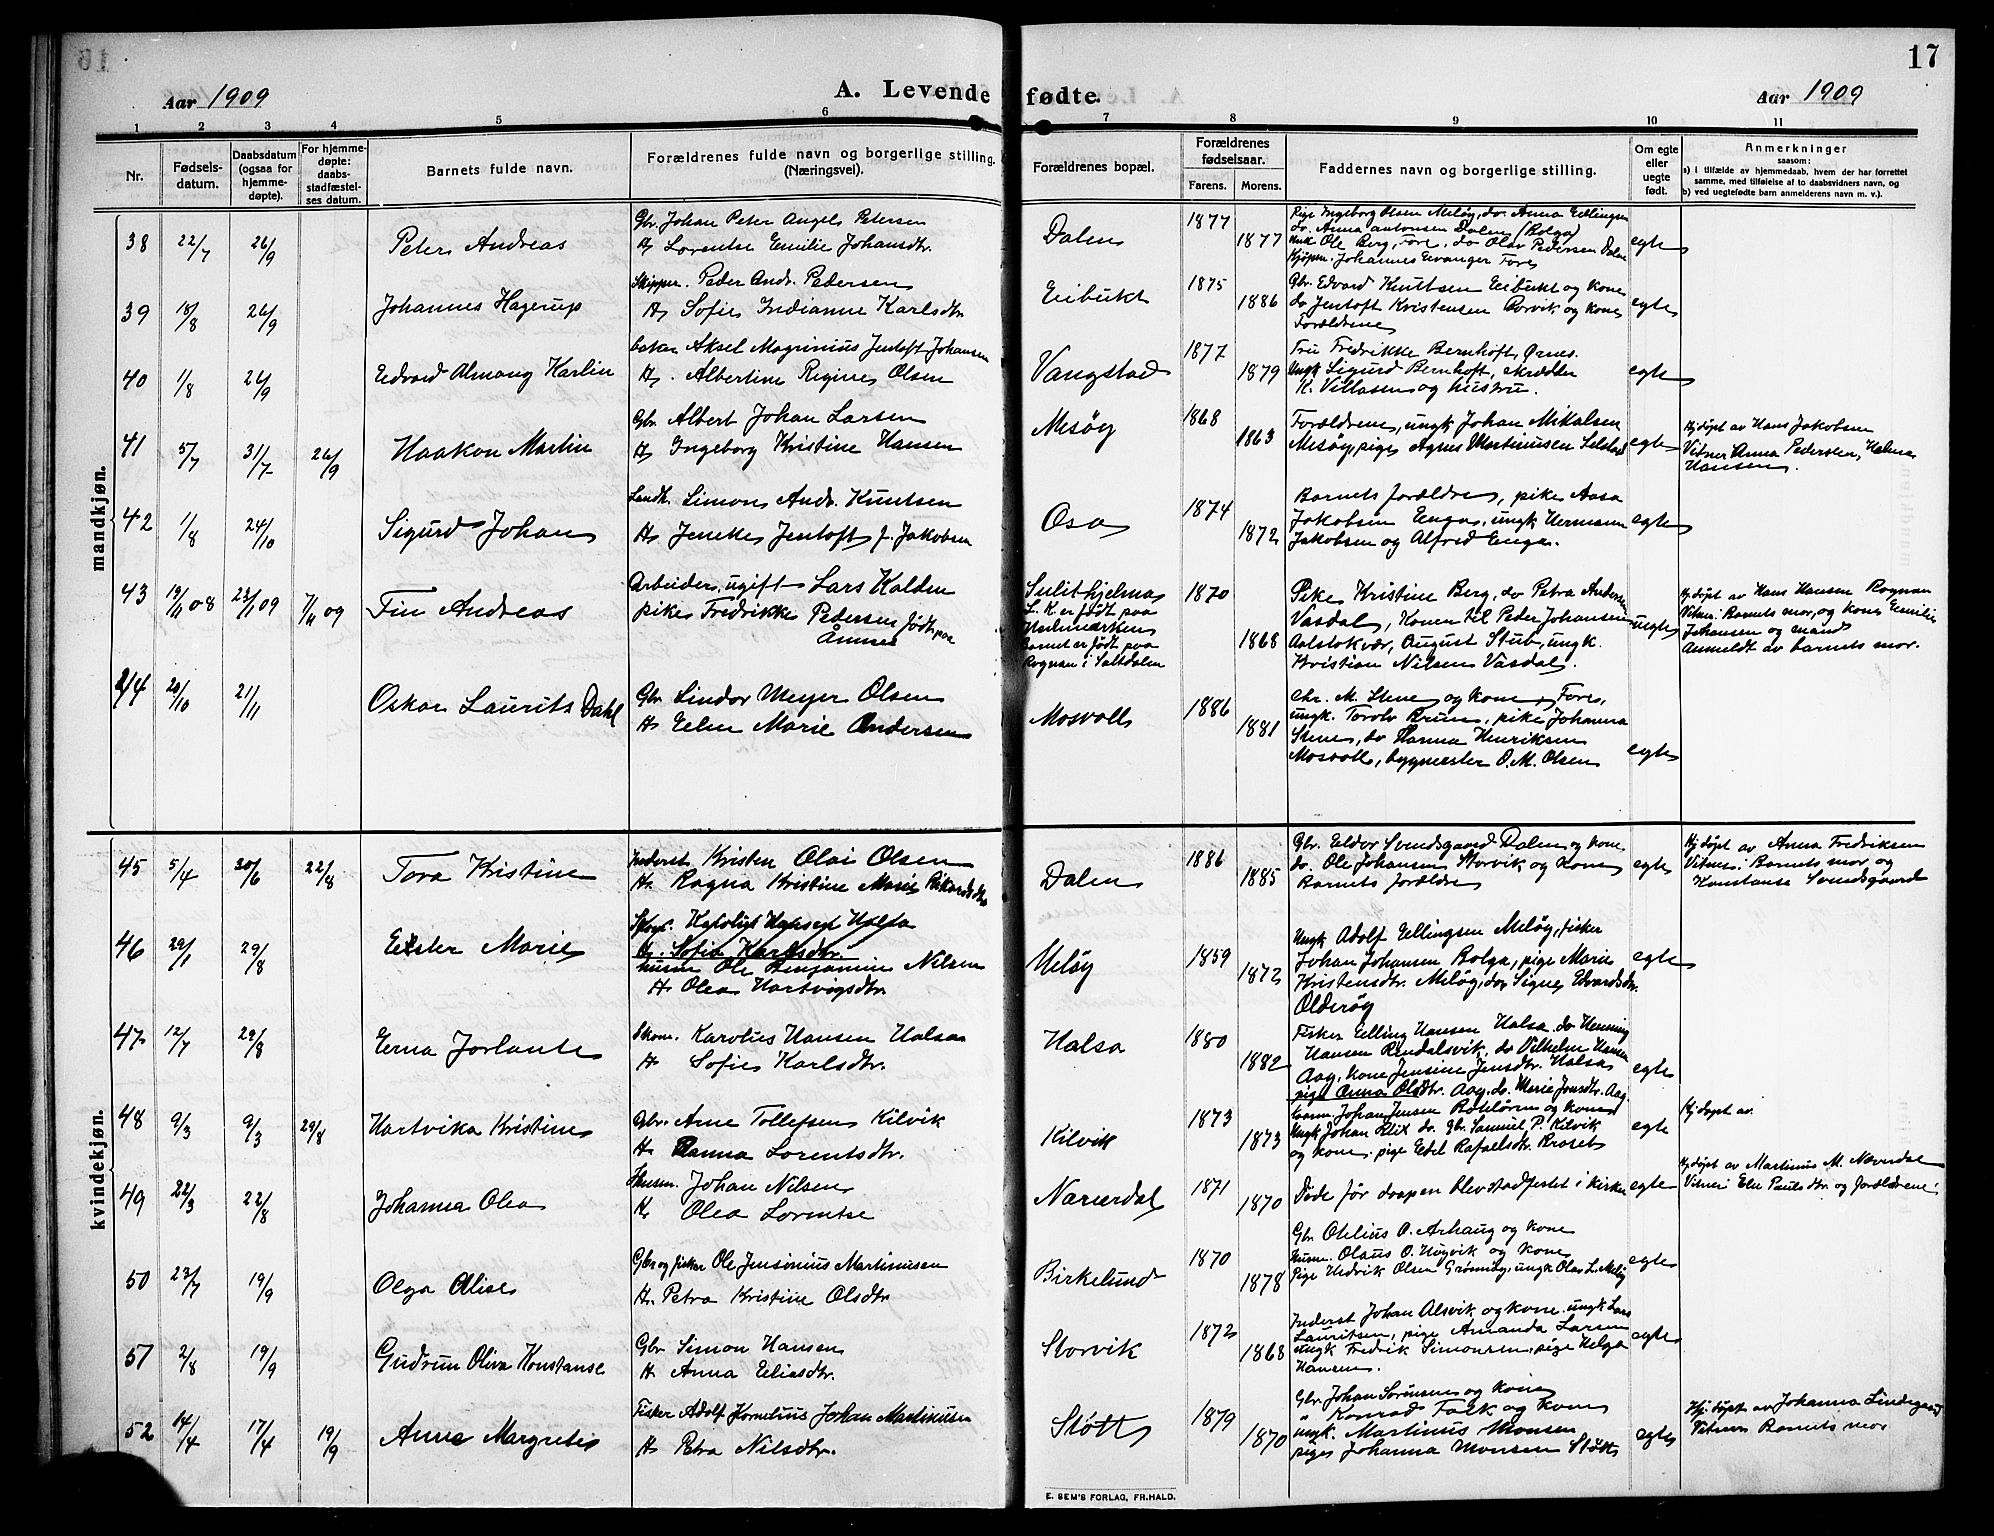 17
Aar 1909
A. Levende fødte.
Aar 1909
1 2 3 4 5 6 7 8 9 10 11
Nr.
Fødsels-
datum.
Daabsdatum
(ogsaa for
hjemme-
døpte).
For hjemme-
døpte:
daabs-
stadfæstel-
ses datum.
Barnets fulde navn.
Forældrenes fulde navn og borgerlige stilling.
(Næringsvei).
Forældrenes bopæl.
Forældrenes
fødselsaar.
Farens. Morens.
Faddernes navn og borgerlige stilling.
Om egte
eller
uegte
født.
Anmerkninger
saasom:
a) i tilfælde av hjemmedaab, hvem der har forrettet
samme, med tilføielse af to daabsvidners navn, og
b) ved uegtefødte barn anmelderens navn m. v.).
mandkjøn.
38 22/7 26/9 Peter Andreas
Gbr. Johan Peter Angel Petersen
H. Lorentse Emilie Johansdtr.
Dalen 1877 1877
Pige Ingeborg Olsen Meløy, do Anna Ellingsen
do. Anna Antonsen Dalen (Bolga)
Ole Berg, Fore, do Olav Pedersen Dalen
Kjøpm. Johannes Evanger Fore
egte
39 18/8 26/9 Johannes Hagerup
Skipper. Peder Andr. Pedersen
H. Sofie Indianne Karlsdtr
Eibukt 1875 1886
Gbr. Edvard Knutsen Eibukt og kone
do Jentoft Kristensen Porvik og kone
Forældrene
egte
40 1/8 26/9 Edvard Almang Karlin
baker Aksel Magnus Jentoft Johansen
H. Albertine Regine Olsen
Vangstad 1877 1879
Fru Fredrikke Bernhoft, Ørnes.
Ungk Sigurd Bernhoft, skrædder
K. Villasen og hustru.
egte
41 5/7 31/7 26/9 Haakon Martin
Gbr Albert Johan Larsen
H. Ingeborg Kristine Hansen
Mesøy 1868 1863
Forældrene, ungk Johan Mikalsen
Mesøy, pige Agnes Martinusen Selstad
egte
Hj døpt av Hans Jakobsen
Vitner Anna Pedersen, Halma
Hansen.
42 1/8 24/10 Sigurd Johan
Landh. Simon Andr. Knutsen
H. Jenekes Jentoft f. Jakobsen
Osa 1874 1872
Barnets forældre, pike Aasa
Jakobsen Enga, ungk Hermann
Jakobsen og Alfred Enga.
egte
43 19/11 08 23/1 09 7/11 09 Fin Andreas
Arbeider, ugift Lars Kalden
pike Fredrikke Pedersen født paa
Ånnes
Sulitjelma
L. K. er født paa
Hedmarken
Barnet er født paa
Rognan i Saltdalen
1870 1868
Pike Kristine Berg, do Petra Andersen
Vasdal, Konen til Peder Johansen
Aalstokvær, August Stub, ungk.
Kristian Nilsen Vasdal.
uegte
Hj døpt av Hans Hansen Rognan
Vitner: Barnets mor, og kone Emilie
Johansen og mand
Anmeldt av barnets mor.
44 20/10 21/11 Oskar Laurits Dahl
Gbr Lindor Meyer Olsen
H. Ellen Marie Andersen
Mosvoll 1886 1881
Chr. M. Stene og kone, Fore,
ungk. Torolv Bruun, pike Johanna
Stene, do Hanna Henriksen
Mosvoll, bygmester O. M. Olsen
egte
kvindekjøn.
45 5/4 20/6 22/8 Tora Kristine
Inderst Kristen Olai Olsen
H. Ragna Kristine Marie Rikardsdtr
Dalen 1886 1885
Gbr. Eldor Svendsgaard Dalen og kone
do. Ole Johansen Storvik og kone
Barnets forældre
egte
Hj døpt av Anna Fredriksen
Vitner: Barnets mor og
Konstanse Svendsgaard
46 29/1 29/8 Ester Marie
H. Sofie Karlsdtr.
husm Ole Benjamin Nilsen
H. Olea Hartvigsdtr.
Meløy 1859 1872
Ungk Adolf Ellingsen Meløy, fisker
Johan Johansen Bolga, pige Marie
Kristensdtr. Meløy, do Signe Edvardsdtr.
Olderøy
egte
47 12/7 29/8 Erna Jorlante
Skom. Karolius Hansen Halsa
H. Sofie Karlsdtr.
Halsa 1880 1882
Fisker Elling Hansen Halsa do Henning
Hansen Rendalsvik, do Vilhelm Hansen
Aag, kone Jensine Jensdtr. Halsa
pige Anna Olsdtr. Aag, do. Marie Jonsdtr. Aag
egte
48 9/3 9/3 29/8 Hartvika Kristine
Gbr. Arne Tollefsen Kilvik
H. Hanna Lorentsdtr.
Kilvik 1873 1873
Johan Jensen og kone
Ungk Johan Klix do. Gbr. Samuel P. Kilvik
og kone. pige Edel Rafaelsdtr. Braset
egte
Hj døpt av
49 22/3 22/8 Johanna Olea
Husm. Johan Nilsen
H. Olea Lorentse
Naverdal 1871 1870
Døde før daapen blev stadfestet i kirken
egte
Hj døpt av Martinus M. Naverdal
Vitner Ellen Paulsdtr og forældrene
50 23/7 19/9 Olga Alise
Gbr og fisker Ole Jensonius Martinusen
H. Petra Kristine Olsdtr
Birkelund 1870 1878
Gbr. Otelius O. Arhaug og kone
husm. Olaus O. Høgvik og kone
Pige Hedvik Olsen Grønnøy, ungk Olav L. Meløy
egte
51 2/8 19/9 Gudrun Oliva Konstanse
Gbr Simon Hansen
H. Anna Eliasdtr.
Storvik 1872 1868
Inderst Johan Alsvik og kone. ungk Lars
Lauritsen, pige Amanda Larsen
ungk Fredrik Simonsen, pige Helga
Hansen.
egte
52 14/4 17/4 19/9 Anne Margrete
Fisker Adolf Kornelius Johan Martinusen
H. Petra Nilsdtr.
Støtt 1879 1870
Gbr Johan Sørensen og kone
" Konrad Falk og kone
ungk. Martinus Monsen
pige Johanna Monsen Støtt
egte
Hj. døpt av Johanna Lindegaard
Vitner Barnets mor
E. SEM'S FORLAG, FR.HALD.